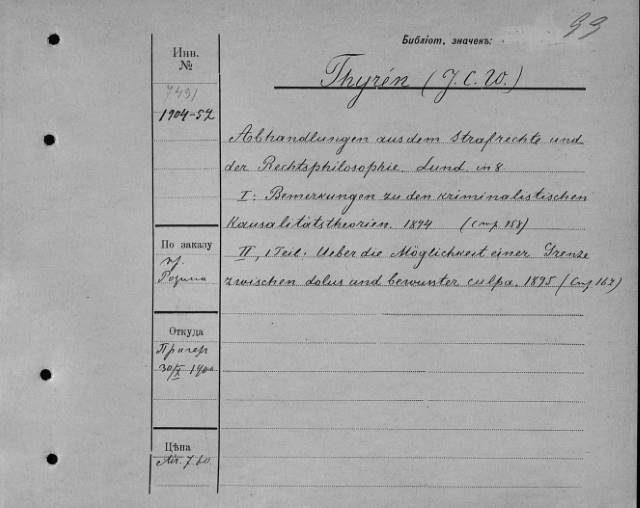 99
Библіот, значекъ:
Инв.
№
7491
1904-52
Thyrén (J.C.W.)
Abhandlungen aus dem Strafrechte und
der Rechtsphilosophie. Lund. in 8
I: Bemerkungen zu den kriminalistischen
Kausalitätstheorien. 1894 (Стр. 158)
II, 1 Teil: Ueber die Möglichkeit einer Grenze
zwischen dolus und bewusster culpa. 1895 (Стр 162)
По заказу
Розина
Откуда
Прагер
30/X
Цѣна
7.60